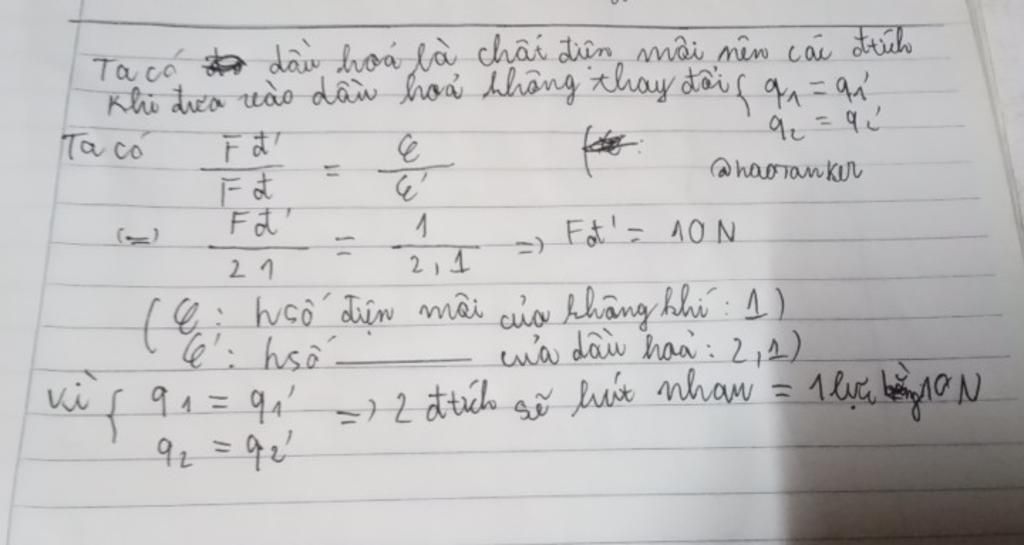 Ta có dầu hoả là chất điện môi nên các đtích
khi đưa vào dầu hoả không thay đổi { q1 = q1'
q2 = q2'
Ta có Fđ' / Fđ = ε / ε'
@haoranker
(=) Fđ' / 21 = 1 / 2,1 => Fđ' = 10 N
(ε: hsố điện môi của không khí: 1)
ε': hsố ______ của dầu hoả: 2,1)
Vì { q1 = q1' => 2 đtích sẽ hút nhau = 1 lực bằng 10 N
q2 = q2'